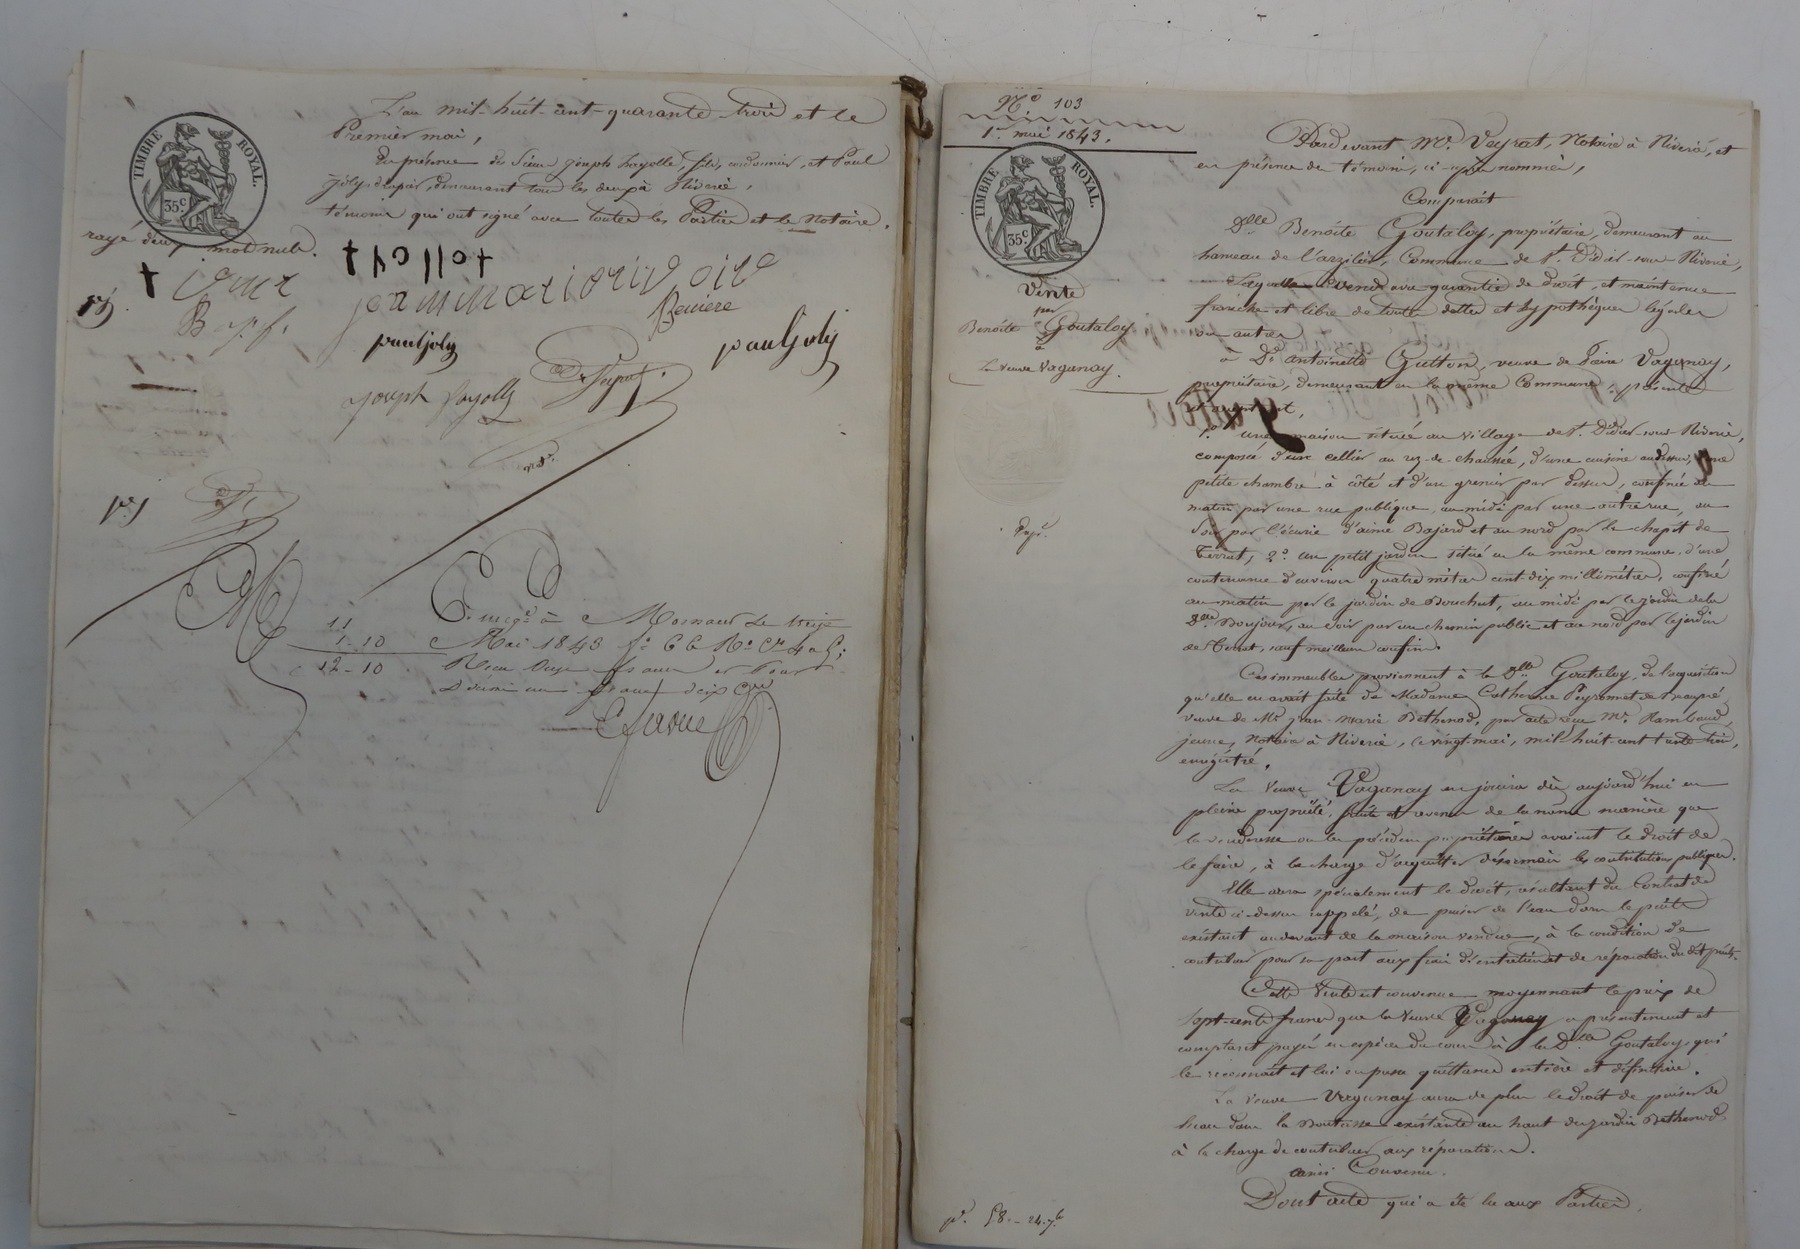 L'an mil-huit-cent-quarante-trois et le
Premier mai,
En présence de Sieur Joseph Fayolle, fils, cordonnier, et Paul
Joly, demeurant tous les deux à Riverie,
témoins qui ont signé avec toutes les Parties et le Notaire.
TIMBRE ROYAL.
35c.
rayé deux mots nuls.
Bajf.
Benière
pauljoly
pauljolij
joseph fayolle
Veyrat
11
1-10
12-10
Enregé à Mornant Le treize
Mai 1843 fo 66 Ro Ce
Reçu onze francs et pour
Décime un franc dix cmes
No 103
1er mai 1843.
TIMBRE ROYAL.
35c.
Vente
par
Benoîte Goutaloy
à
La Veuve Vaganay.
Expé.
Pardevant Me Veyrat, Notaire à Riverie, et
en présence des témoins, ci-après nommés,
Comparait
Dlle Benoîte Goutaloy, propriétaire, demeurant au
hameau de l'arzilier, Commune de St. Didier-sous-Riverie,
Laquelle vend avec garantie de droit, et maintenue
franche et libre de toutes dettes et hypothèques légales
ou autres
à De Antoinette Guttton, veuve de Pierre Vaganay,
propriétaire, demeurant en la même Commune, présente
et acceptant,
1o une maison située au village de St. Didier-sous-Riverie,
composée d'un cellier au rez-de-chaussée, d'une cuisine audessus, d'une
petite chambre à côté et d'un grenier par dessus, confinée au
matin par une rue publique, au midi par une autre rue, au
soir par l'écurie d'aimé Bajard et au nord par le chapit de
Terrat, 2o un petit jardin situé en la même commune, d'une
contenance d'environ quatre mètres cent-dix millimètres, confiné
au matin par le jardin de Bouchut, au midi par le jardin de la
Dme Boujour, au soir par un chemin public et au nord par le jardin
de Terrat, sauf meilleurs confins.
Ces immeubles proviennent à la Dlle Goutaloy, de l'acquisition
qu'elle en avait faite de Madame Catherine Peyronnet de Beaupré
veuve de Mr Jean-Marie Bethenod, par acte reçu Me Rambaud,
jeune, Notaire à Riverie, le vingt-mai, mil-huit-cent trente trois,
enregistré.
La Veuve Vaganay en jouira dès aujourd'hui en
pleine propriété, fruits et revenus de la même manière que
la venderesse ou les précédens propriétaires avaient le droit de
le faire, à la charge d'acquitter désormais les contributions publiques.
Elle aura spécialement le droit, résultant du Contrat de
vente ci-dessus rappelé, de puiser de l'eau dans le puits
existant audevant de la maison vendue, à la condition de
contribuer pour sa part aux frais d'entretien et de réparation du dit puits.
Cette Vente est convenue moyennant le prix de
Sept-cents francs que la Veuve Vaganay a présentement et
comptant payé en espèces du cours à la Dlle Goutaloy, qui
le reconnait et lui en passe quittance entière et définitive.
La Veuve Vaganay aura de plus le droit de puiser de
l'eau dans la Boutasse existante au haut du jardin Bethenod
à la charge de contribuer aux réparations.
ainsi Convenu.
Dont acte qui a été lu aux Parties.